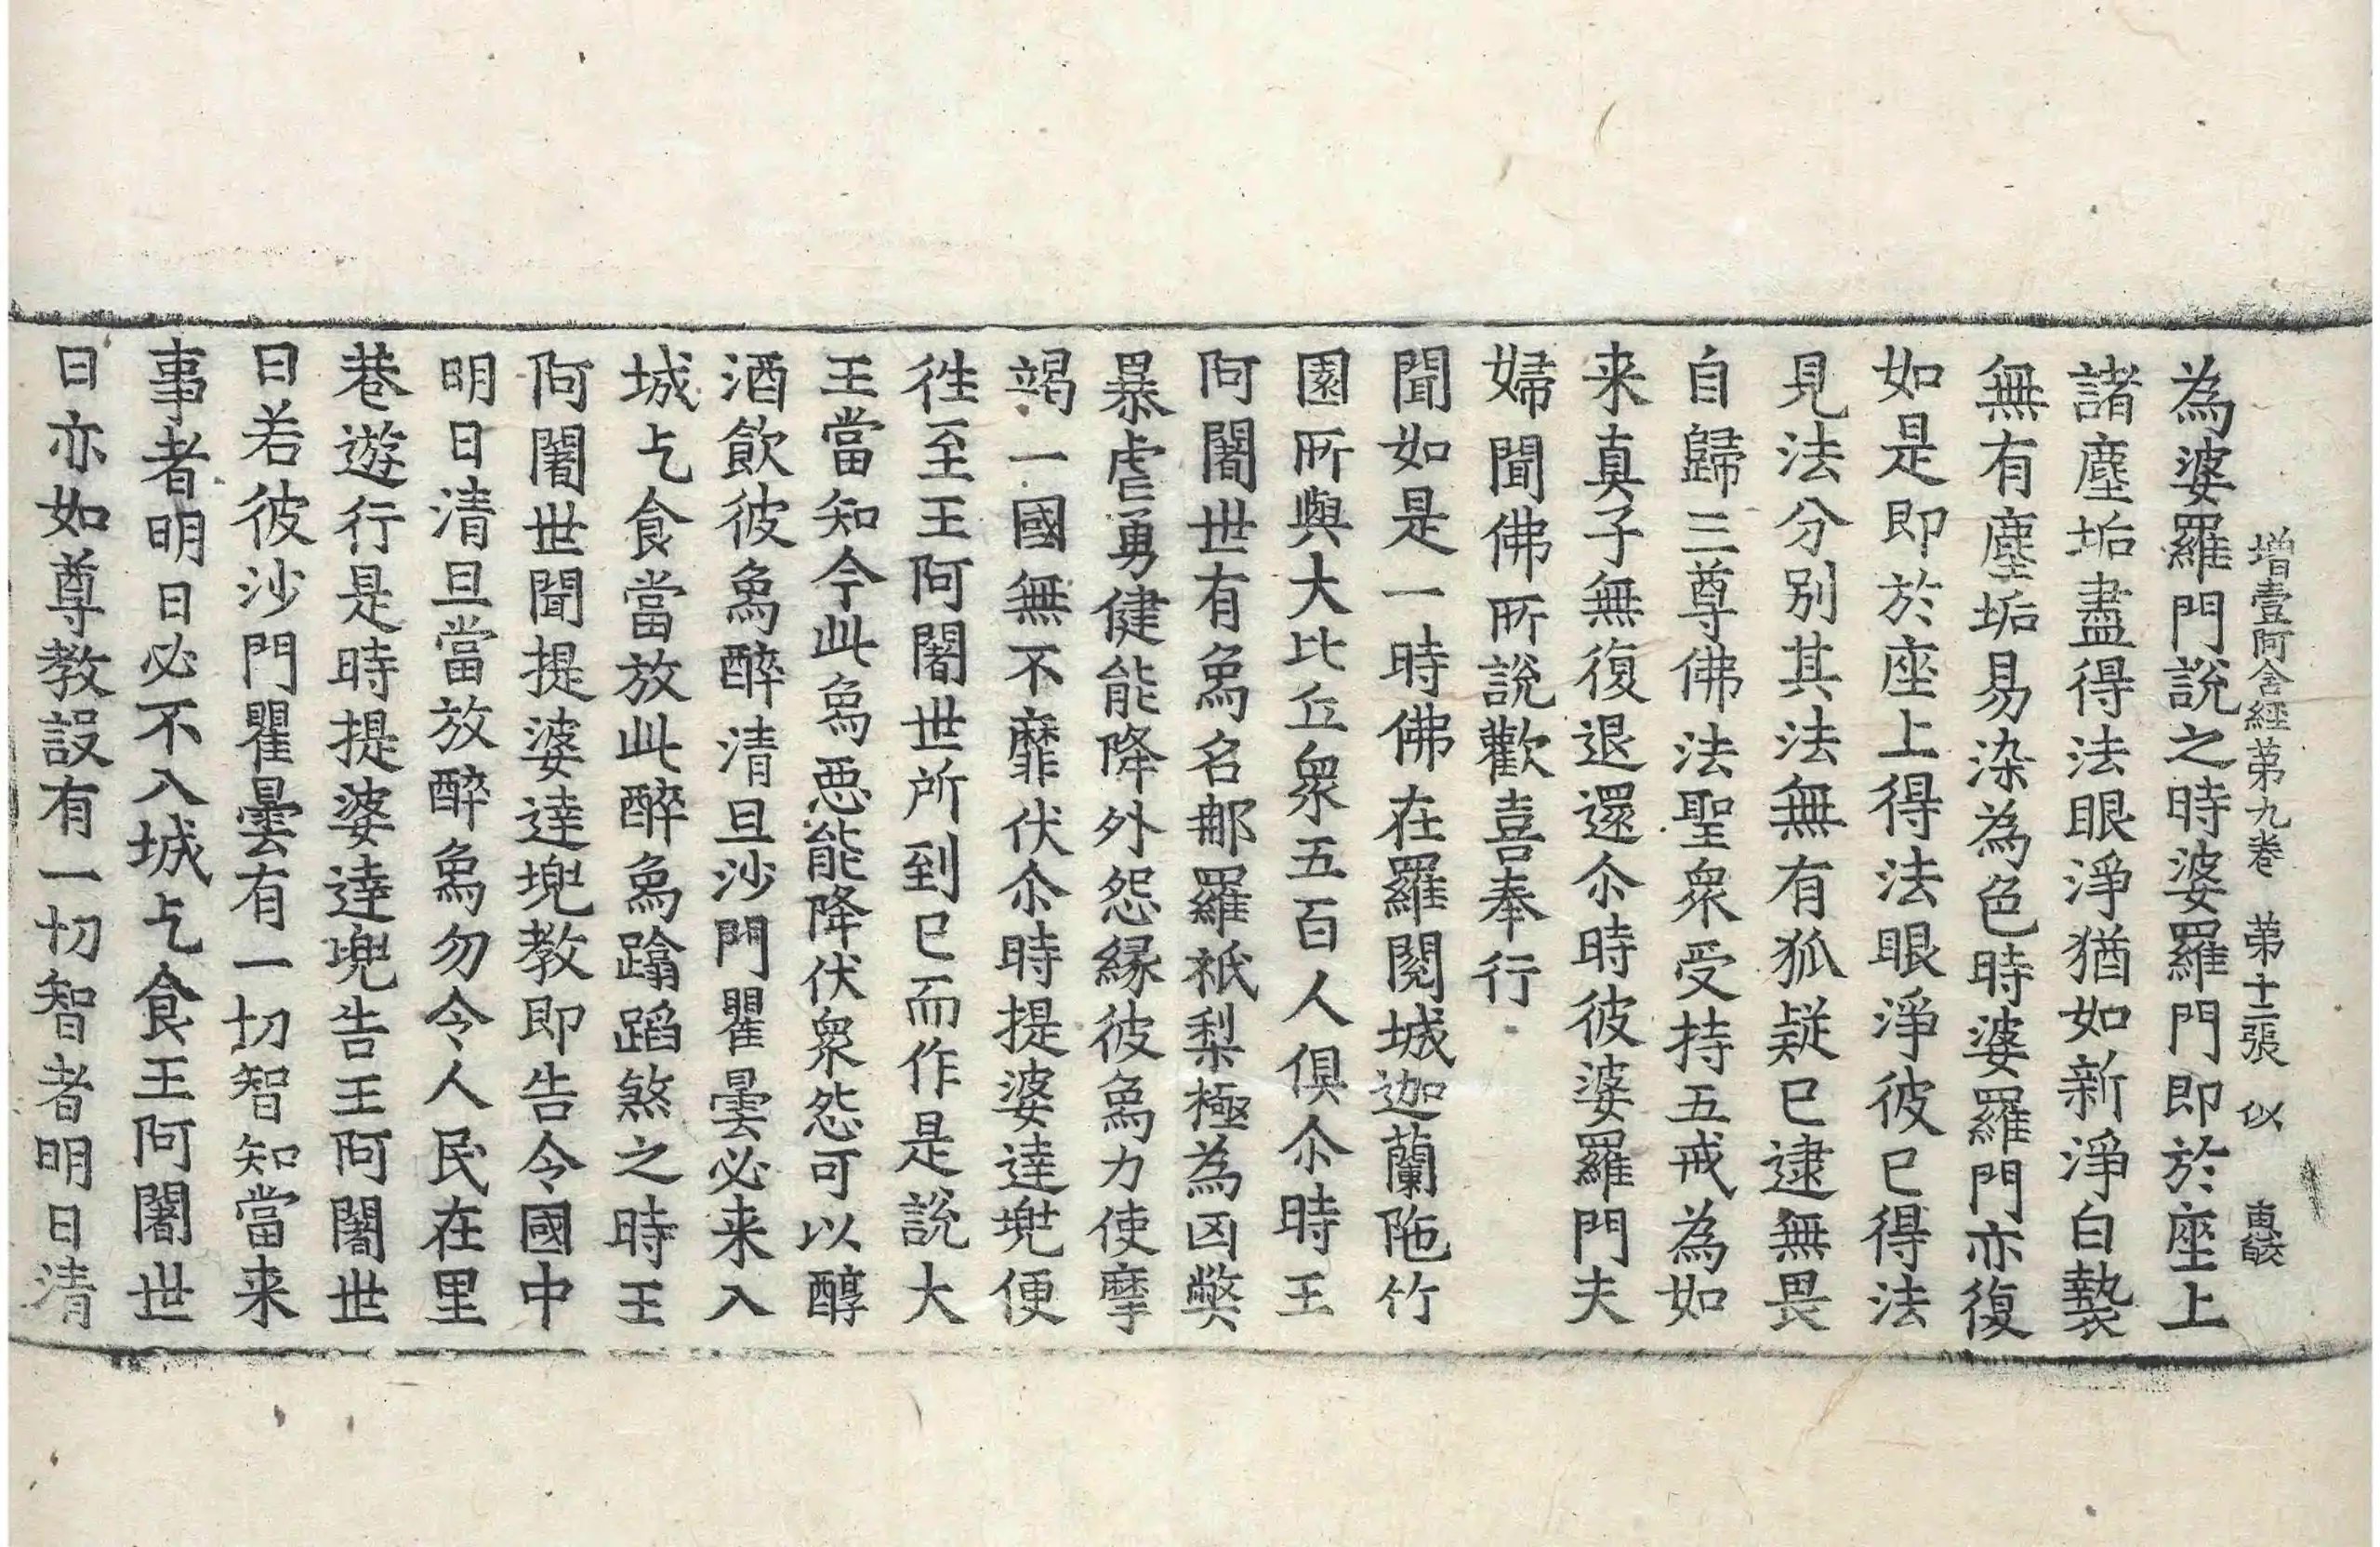 增壹阿含經第九卷 第十二張 似
為婆羅門說之時婆羅門即於座上
諸塵垢盡得法眼淨猶如新淨白㲲
無有塵垢易染為色時婆羅門亦復
如是即於座上得法眼淨彼已得法
見法分別其法無有狐疑已逮無畏
自歸三尊佛法聖衆受持五戒為如
来真子無復退還尒時彼婆羅門夫
婦聞佛所說歡喜奉行
聞如是一時佛在羅閱城迦蘭陁竹
園所與大比丘衆五百人俱尒時王
阿闍世有象名那羅祇梨極為凶弊
暴虐勇健能降外怨緣彼象力使摩
竭一國無不靡伏尒時提婆達兜便
往至王阿闍世所到已而作是說大
王當知今此象惡能降伏衆怨可以醇
酒飲彼象醉清旦沙門瞿曇必来入
城乞食當放此醉象蹹蹈煞之時王
阿闍世聞提婆達兜教即告令國中
明日清旦當放醉象勿令人民在里
巷遊行是時提婆達兜告王阿闍世
曰若彼沙門瞿曇有一切智知當来
事者明日必不入城乞食王阿闍世
曰亦如尊教設有一切智者明日清